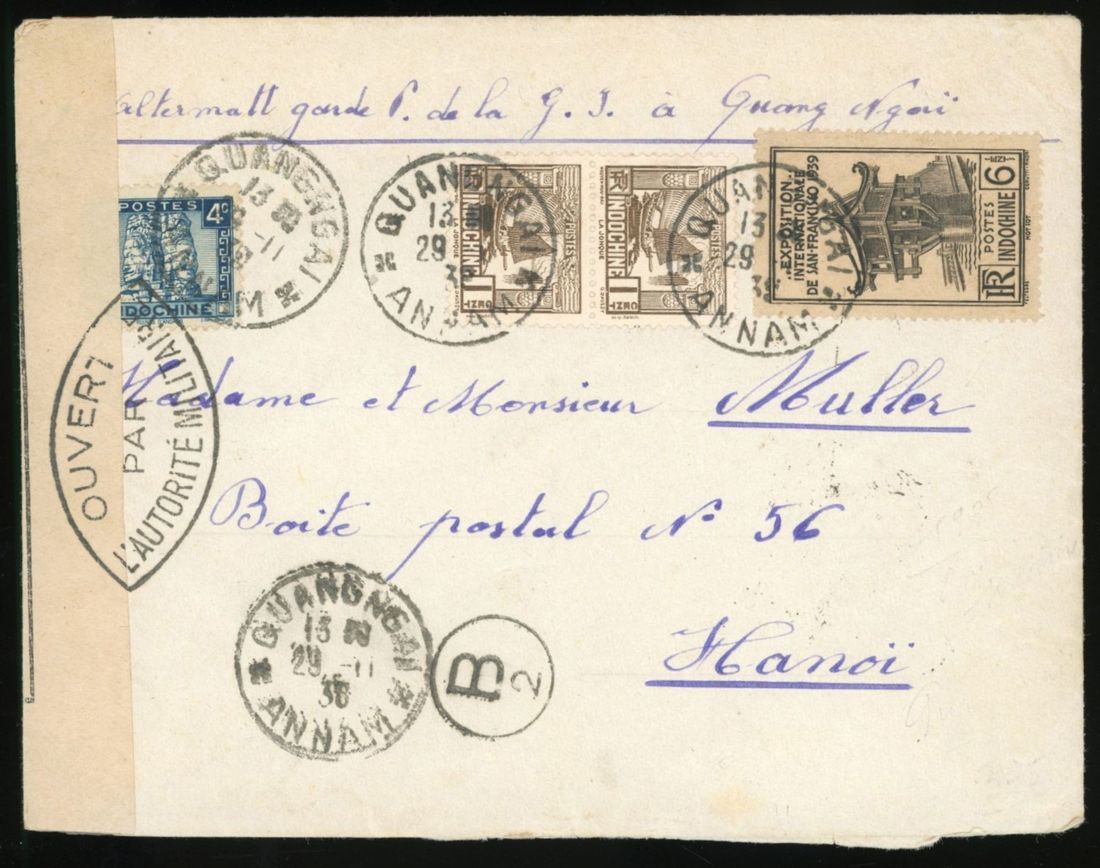 altermatt garde P. de la G. I. à Quang Ngaï
POSTES 4c
DOCHINE
QUANGNGAI
13
-11
QUANGNGAI
13
29
ANNAM
RF INDOCHINE POSTES
LA JONQUE
1 CENT
RF INDOCHINE POSTES
LA JONQUE
1 CENT
QUANGNGAI
13
29
ANNAM
„EXPOSITION„
INTERNATIONALE
DE SAN-FRANCISCO 1939
POSTES
INDOCHINE
RF
6 CENTS
OUVERT
PAR
L'AUTORITÉ MILITAIRE
Madame et Monsieur Muller
Boite postal N° 56
Hanoï
QUANGNGAI
13
29 -11
ANNAM
B
2